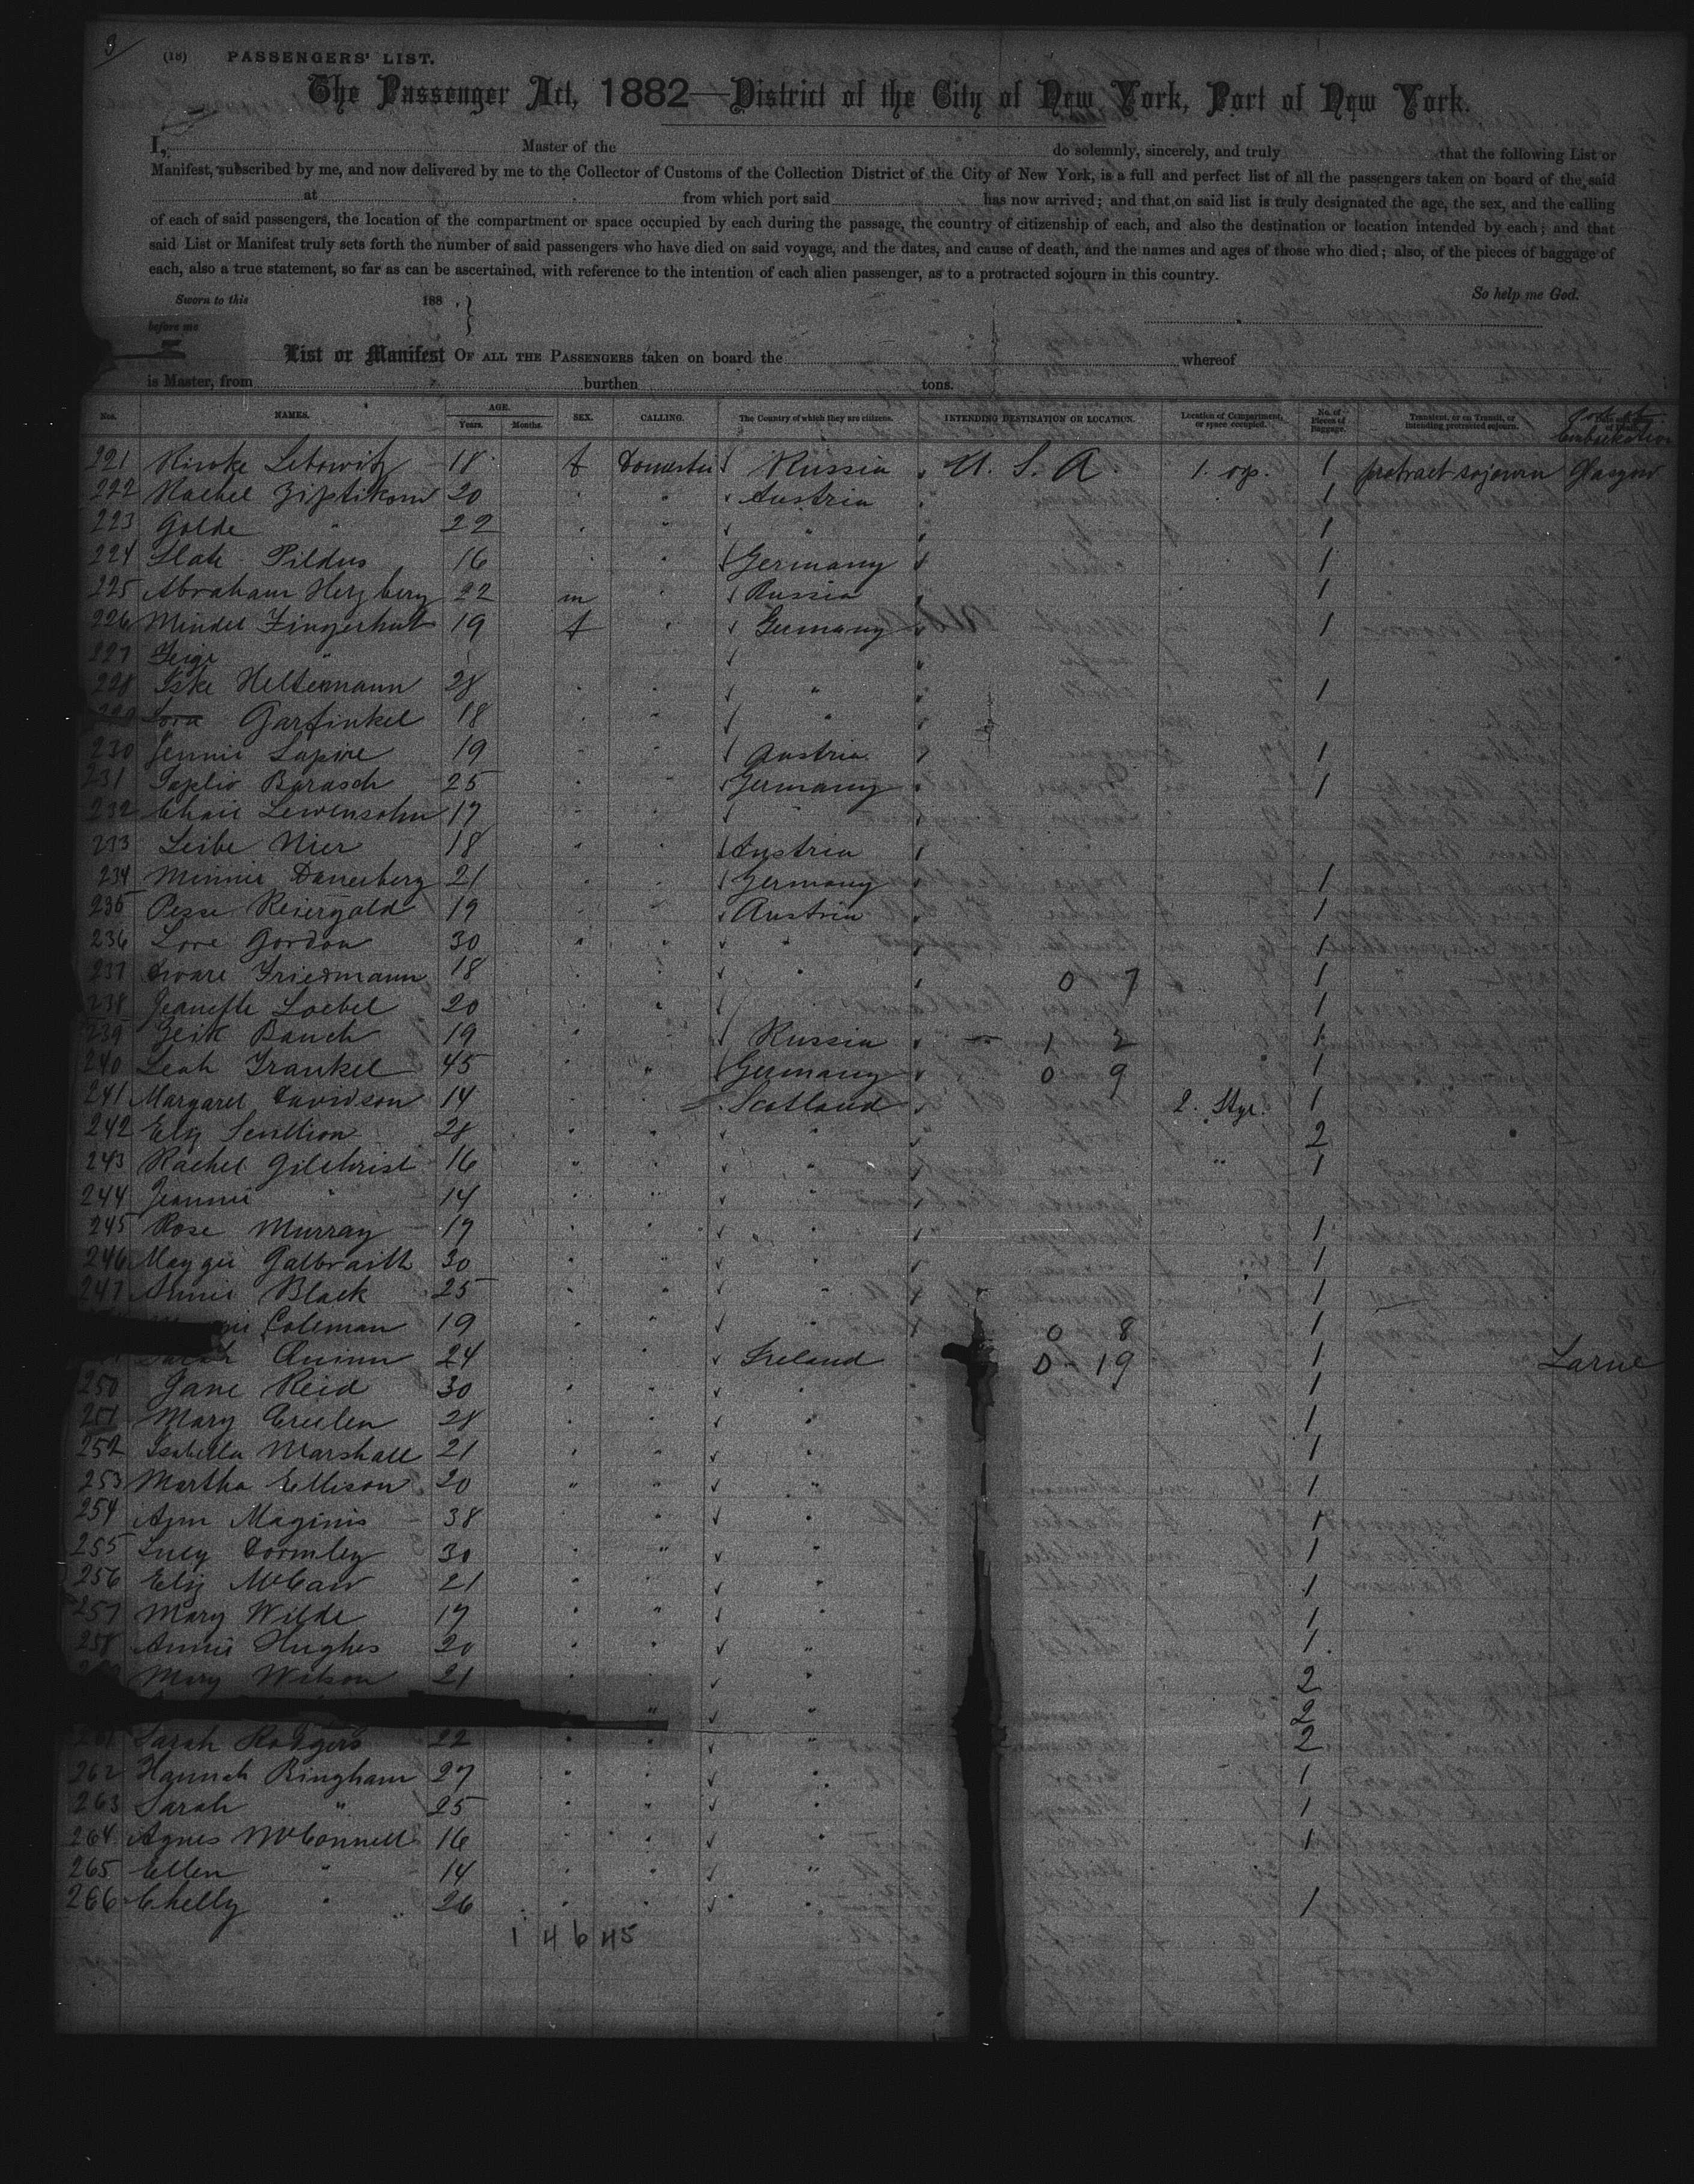 3
(18) PASSENGERS' LIST.
The Passenger Act, 1882—District of the City of New York, Port of New York.
I, Master of the do solemnly, sincerely, and truly that the following List or
Manifest, subscribed by me, and now delivered by me to the Collector of Customs of the Collection District of the City of New York, is a full and perfect list of all the passengers taken on board of the said
at from which port said has now arrived; and that on said list is truly designated the age, the sex, and the calling
of each of said passengers, the location of the compartment or space occupied by each during the passage, the country of citizenship of each, and also the destination or location intended by each; and that
said List or Manifest truly sets forth the number of said passengers who have died on said voyage, and the dates, and cause of death, and the names and ages of those who died; also, of the pieces of baggage of
each, also a true statement, so far as can be ascertained, with reference to the intention of each alien passenger, as to a protracted sojourn in this country.
Sworn to this 188 . } So help me God.
before me
List or Manifest OF ALL THE PASSENGERS taken on board the whereof
is Master, from burthen tons.
Nos. NAMES. AGE. Years. Months. SEX. CALLING. The Country of which they are citizens. INTENDING DESTINATION OR LOCATION. Location of Compartment, or space occupied. No. of Pieces of Baggage. Transient, or on Transit, or intending protracted sojourn. Port of Embarkation
221 Riwke Lebowitz 18 f Domestic Russia U. S. A. 1. 1 protract sojourn Glasgow
222 Rachel 20 " " Austria " 1
223 Golde " 22 " " " " 1
224 Slate Pildus 16 " " Germany " 1
225 Abraham Herzberg 22 m " Russia " 1
226 Mindel Fingerhut 19 f " Germany " 1
227 Feige " "
228 Iske Heltermann 28 " " " " 1
229 Garfinkel 18 " " " "
230 Jennie Lapire 19 " " Austria " 1
231 Barasch 25 " " Germany " 1
232 Chaie Lewensohn 17 " " " "
233 Leibe Nier 18 " " Austria "
234 Minnie Danerberg 21 " " Germany " 1
235 Pesse Reiergold 19 " " Austria " 1
236 Lore Gordon 30 " " " " 1
237 Friedmann 18 " " " " 0 7 1
238 Jeanette Loebel 20 " " " 1
239 Zeik Bauch 19 " " Russia " 1 2 1
240 Leah Frankel 45 " " Germany " 0 9 1
241 Margaret Davidson 14 " " Scotland " 2. Stge. 1
242 Eliz Scullion 28 " " " " 2
243 Rachel Gilchrist 16 " " " " " 1
244 Jeannie " 14 " " " "
245 Rose Murray 17 " " " " 1
246 Maggie Galbraith 30 " " " " 1
247 Annie Black 25 " " " " 1
Coleman 19 " " " 0 8 1
Sarah Quinn 24 Ireland 0 - 19 1 Larne
250 Jane Reid 30 " " " 1
251 Mary 28 " " " 1
252 Isabella Marshall 21 " " " 1
253 Martha Ellison 20 " " " 1
254 Ann Maginis 38 " " " 1
255 Lucy Dormley 30 " " " 1
256 Eliz McCaw 21 " " " 1
257 Mary Wilde 17 " " " 1
258 Annie Hughes 20 " " " 1
Mary Wilson 21 " " 2
" " " 2
Sarah Rodgers 22 " " " 2
262 Hannah Bingham 27 " " " 1
263 Sarah " 25 " " " 1
264 Agnes McConnell 16 " " " 1
265 Ellen " 14 " " "
266 Chelly " 26 " " " 1
1 4 6 45